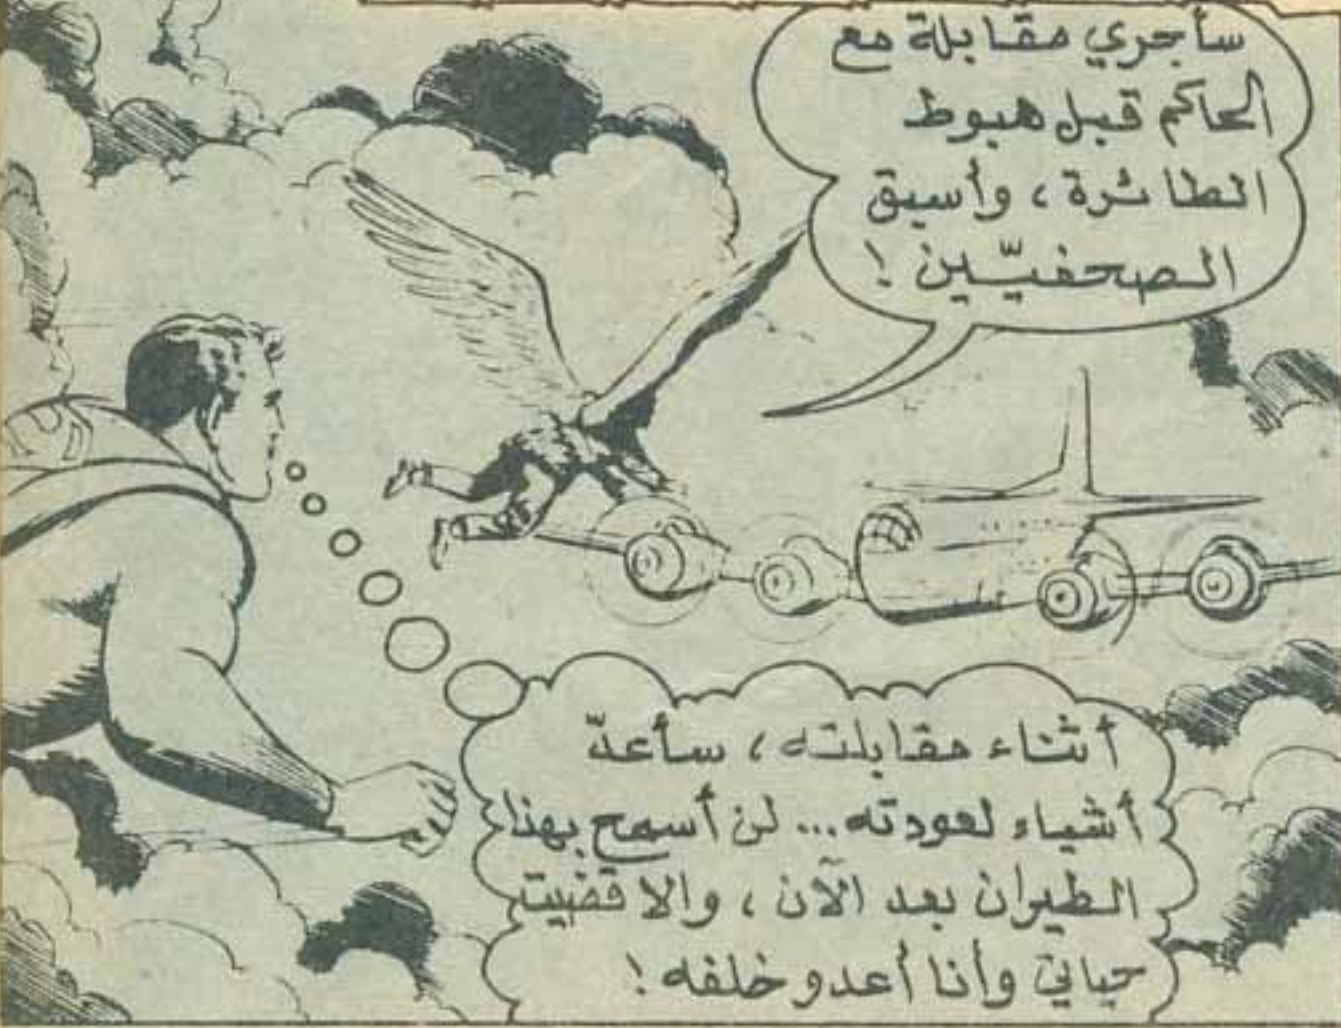 سأجري مقابلة مع
الحاكم قبل هبوط
الطائرة، وأسبق
الصحفيّين!
أثناء مقابلته، سأعدّ
أشياء لعودته... لن أسمح بهذا
الطيران بعد الآن، والا قضيت
حياتي وأنا أعدو خلفه!